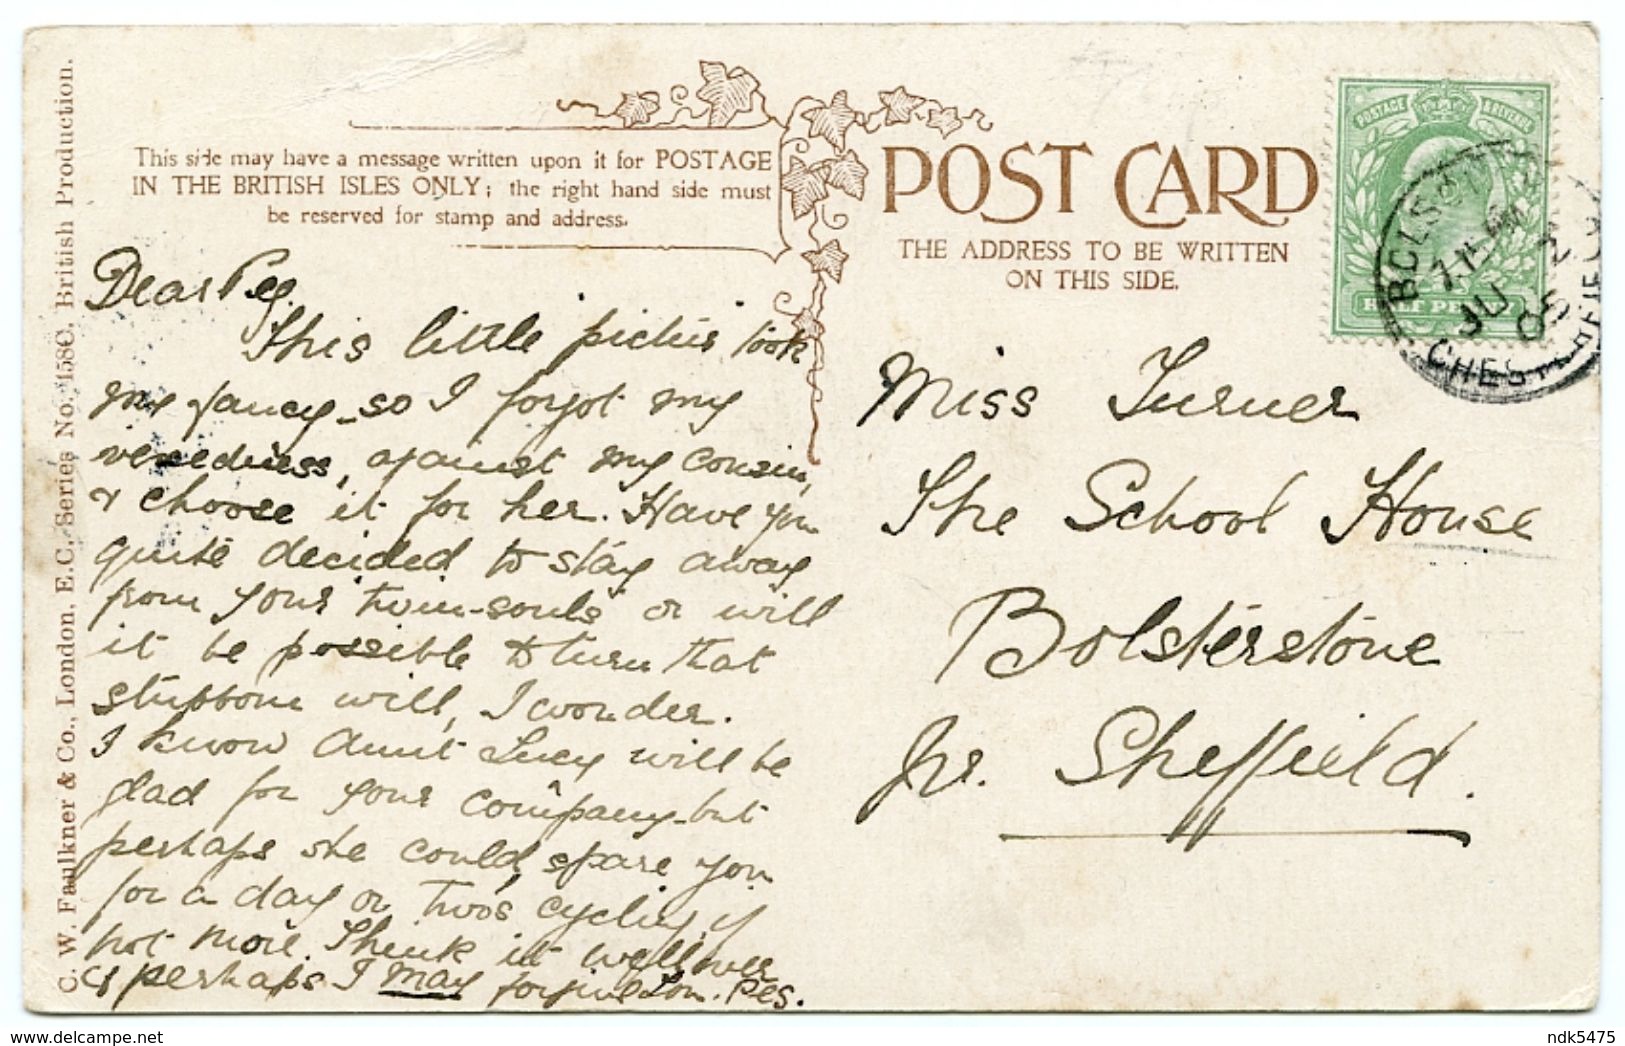 This side may have a message written upon it for POSTAGE
IN THE BRITISH ISLES ONLY; the right hand side must
be reserved for stamp and address.
POST CARD
THE ADDRESS TO BE WRITTEN
ON THIS SIDE.
POSTAGE & REVENUE
HALF PENNY
CHESTERFIELD
JU
05
C. W. Faulkner & Co., London, E.C., Series No. 1580. British Production.
Dear Peg.
This little picture took
my fancy - so I forgot my
vexedness, against my cousin,
& choose it for her. Have you
quite decided to stay away
from your 'twin-souls' or will
it be possible to turn that
stubborn will, I wonder.
I know Aunt Lucy will be
glad for your company - but
perhaps she could spare you
for a day or two's cycling, if
not more. Think it well over
& perhaps I may forgive
Miss Turner
The School House
Bolsterstone
Nr. Sheffield.
ndk5475